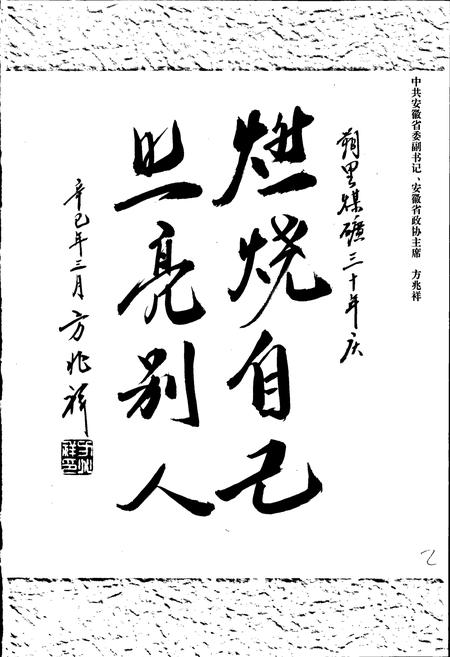 中共安徽省委副书记、安徽省政协主席 方兆祥
朔里煤矿三十年庆
燃烧自己
照亮别人
辛巳年三月方兆祥